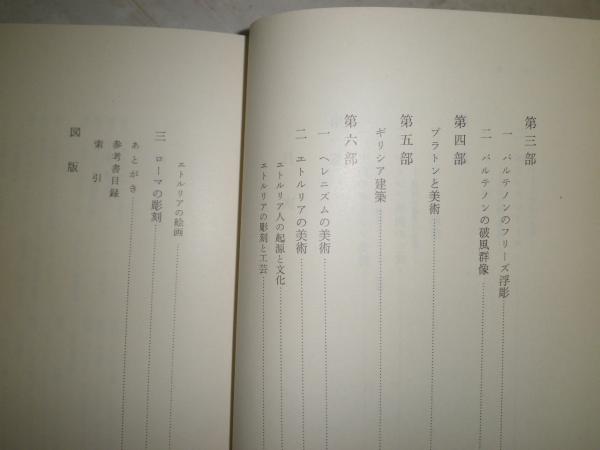 第三部
一 パルテノンのフリーズ浮彫
二 パルテノンの破風群像
第四部
プラトンと美術
第五部
ギリシア建築
第六部
一 ヘレニズムの美術
二 エトルリアの美術
エトルリア人の起源と文化
エトルリアの彫刻と工芸
エトルリアの絵画
三 ローマの彫刻
あとがき
参考書目録
索引
図版